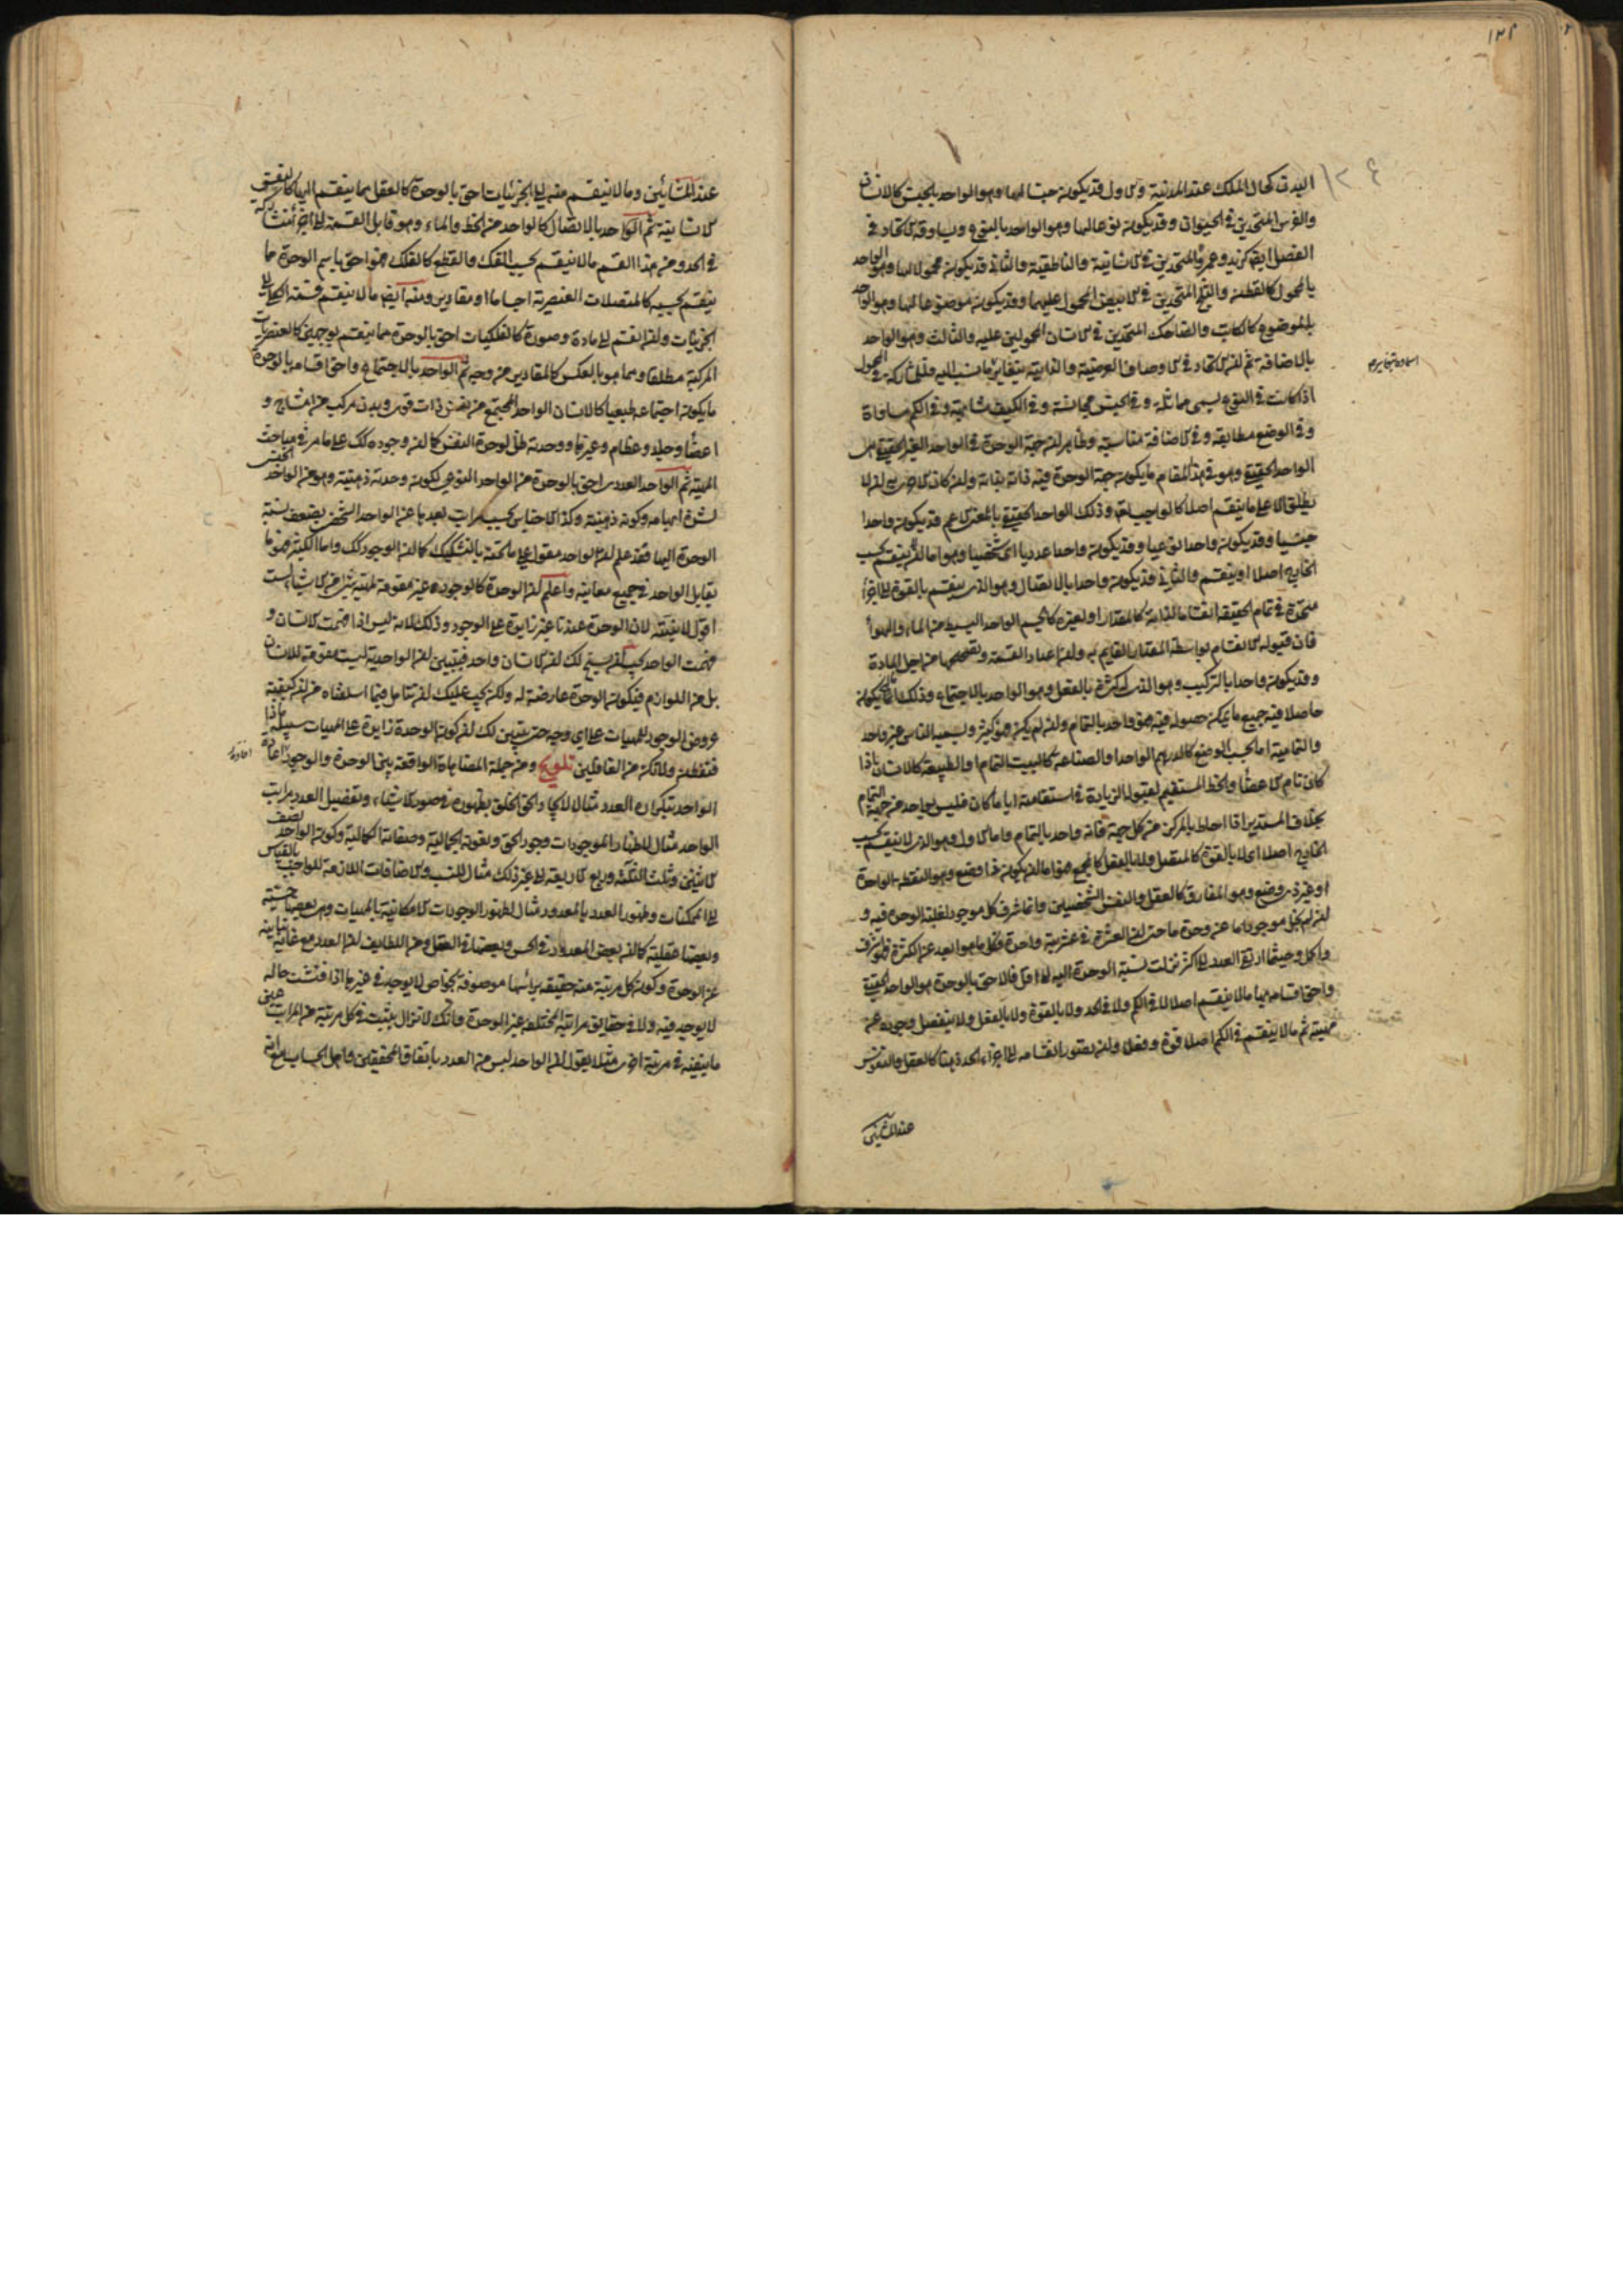 ١٢٤
البدن كحال الملك عند المدينة والاول قد يكون جنسا لهما وهو الواحد بالجنس كالانسان
والفرس المتحدين في الحيوان وقد يكون نوعا لهما وهو الواحد بالنوع ويساوقه الاتحاد في
الفصل ايضا كزيد وعمرو المتحدين في الانسانية والناطقية والثاني قد يكون محمولا لهما وهو الواحد
بالمحمول كالقطن والثلج المتحدين في الابيض المحمول عليهما وقد يكون موضوعا لهما وهو الواحد
بالموضوع كالكاتب والضاحك المتحدين في الانسان المحمولين عليه والثالث وهو الواحد
بالاضافة ثم ان الاتحاد في الاوصاف العرضية والذاتية يتغاير ما نسب اليه فالمشاركة في المحمول
اذا كانت في النوع يسمى مماثلة وفي الجنس مجانسة وفي الكيف مشابهة وفي الكم مساواة
وفي الوضع مطابقة وفي الاضافة مناسبة وظاهر ان جهة الوحدة في الواحد الغير الحقيقي هي
الواحد الحقيقي وهو في هذا المقام ما يكون جهة الوحدة فيه ذاته بذاته وان كان الاحرى ان لا
يطلق الا على ما لا ينقسم اصلا كالواجب تعالى وذلك الواحد الحقيقي بالمعنى الاعم قد يكون واحدا
جنسيا وقد يكون واحدا نوعيا وقد يكون واحدا عدديا اي شخصيا وهو اما لا ينقسم بحسب
الخارج اصلا او ينقسم والثاني قد يكون واحدا بالاتصال وهو الذي ينقسم بالقوة الى اجزاء
متحدة في تمام الحقيقة انقساما لذاته كالمقدار او لغيره كالجسم الواحد البسيط من الماء والهواء
فان قبوله الانقسام بواسطة المقدار القايم به وان اعداد القسمة وتصحيحها من اجل المادة
وقد يكون واحدا بالتركيب وهو الذي له كثرة بالفعل وهو الواحد بالاجتماع وذلك اما ان يكون
حاصلا فيه جميع ما يمكن حصوله فيه فهو واحد بالتمام وان لم يكن فهو كثير ويسميه الناس غير واحد
والتمامية اما بحسب الوضع كالدرهم الواحد او الصناعة كالبيت التمام او الطبيعة كالانسان اذا
كان تام الاعضاء والخط المستقيم لقبوله الزيادة في استقامته ايا ما كان فليس بواحد من جهة التمام
بخلاف المستدير اذا احاط بالمركز من كل جهة فانه واحد بالتمام واما الاول وهو الذي لا ينقسم بحسب
الخارج اصلا اي لا بالقوة كالمتصل ولا بالفعل كالمجتمع فهو اما ان يكون ذا وضع وهو النقطة الواحدة
او غير ذي وضع وهو المفارق كالعقل والنفس الشخصيين وانما شرف كل موجود لغلبة الوحدة فيه و
ان لم يخل موجود ما عن وحدة ما حتى ان العشرة في عشريته واحدة فكل ما هو ابعد عن الكثرة فهو اشرف
واكمل وحيثما ارتقى العدد الى اكثر نزلت نسبة الوحدة اليه الى اقل فالاحق بالوحدة هو الواحد الحقيقي
واحق اقسامه بها ما لا ينقسم اصلا لا في الكم ولا في الحد ولا بالقوة ولا بالفعل ولا ينفصل وجوده عن
مهيته ثم ما لا ينقسم في الكم اصلا قوة وفعلا وان يتصور انقسامه الى اجزاء الحد ذهنا كالعقل والنفس
عند المشائين
عند المشائين وما لا ينقسم منه الى الجزئيات احق بالوحدة كالعقل مما ينقسم اليها كالنفس
الانسانية ثم الواحد بالاتصال كالواحد من الخط والماء وهو قابل القسمة الى اجزاء متشاركة
في الحد ومن هذا القسم ما لا ينقسم بحسب الفك والقطع كالفلك فهو احق باسم الوحدة مما
ينقسم بحسبه كالمتصلات العنصرية اجساما او مقادير ومنه ايضا ما لا ينقسم قسمة الكلي الى
الجزئيات وان انقسم الى مادة وصورة كالفلكيات احق بالوحدة مما ينقسم بوجهين كالعنصريات
المركبة مطلقا وما هو بالعكس كالمقادير من وجه ثم الواحد بالاجتماع واحق اقسامه بالوحدة
ما يكون اجتماعه طبيعيا كالانسان الواحد المجتمع من نفس ذات قوى وبدن مركب من امشاج و
اعضاء وجلد وعظام وغيرها ووحدته ظل لوحدة النفس كما ان وجوده كذلك على ما مر في مباحث
المهية ثم الواحد العددي احق بالوحدة من الواحد النوعي لكونه وحدته ذهنية وهو من الواحد الجنسي
لشدة ابهامه وكونه ذهنية وكذا الاجناس بحسب مراتب بعدها عن الواحد الشخصي يضعف نسبة
الوحدة اليها فقد علم ان الواحد مقول على ما تحته بالتشكيك كما ان الوجود كذلك واما الكثير فهو ما
يقابل الواحد في جميع معانيه واعلم ان الوحدة كالوجود غير مقومة لمهية شيء من الاشياء لست
اقول لانيته لان الوحدة عندنا غير زايدة على الوجود وذلك لانه ليس اذا فهمت الانسان و
فهمت الواحد يجب ان يسنح لك ان الانسان واحد فيتبين ان الواحدية ليست مقومة للانسان
بل من اللوازم فيكون الوحدة عارضة له ولكن يجب عليك ان تتامل فيما اسلفناه من ان كيفية
عروض الوجود للمهيات على اي وجه حتى يتبين لك ان كون الوحدة زايدة على المهيات سبيله ماذا
فتفطن ولا تكن من الغافلين تلويح ومن جملة المضاهاة الواقعة بين الوحدة والوجود افادة
الواحد بتكراره العدد مثال لايجاد الحق الخلق بظهوره في صور الاشياء وتفصيل العدد مراتب
الواحد مثال لاظهار الموجودات وجود الحق ونعوته الجمالية وصفاته الكمالية وكون الواحد نصف
الاثنين وثلث الثلثة وربع الاربعة الى غير ذلك مثال للنسب والاضافات اللازمة للواجب بالقياس
الى الممكنات وظهور العدد بالمعدود مثال لظهور الوجودات الامكانية بالمهيات وهي بعضها حسية
وبعضها عقلية كما ان بعض المعدود في الحس وبعضها في العقل ومن اللطايف ان العدد مع غاية تباينه
عن الوحدة وكون كل مرتبة منه حقيقة براسها موصوفة بخواص لا يوجد في غيرها اذا فتشت حاله
لا يوجد فيه ولا في حقايق مراتبه المختلفة غير الوحدة وانك لا تزال تثبت في كل مرتبة من المراتب عين
ما تنفيه في مرتبة اخرى مثلا يقول ان الواحد ليس من العدد باتفاق المحققين واهل الحساب مع انه